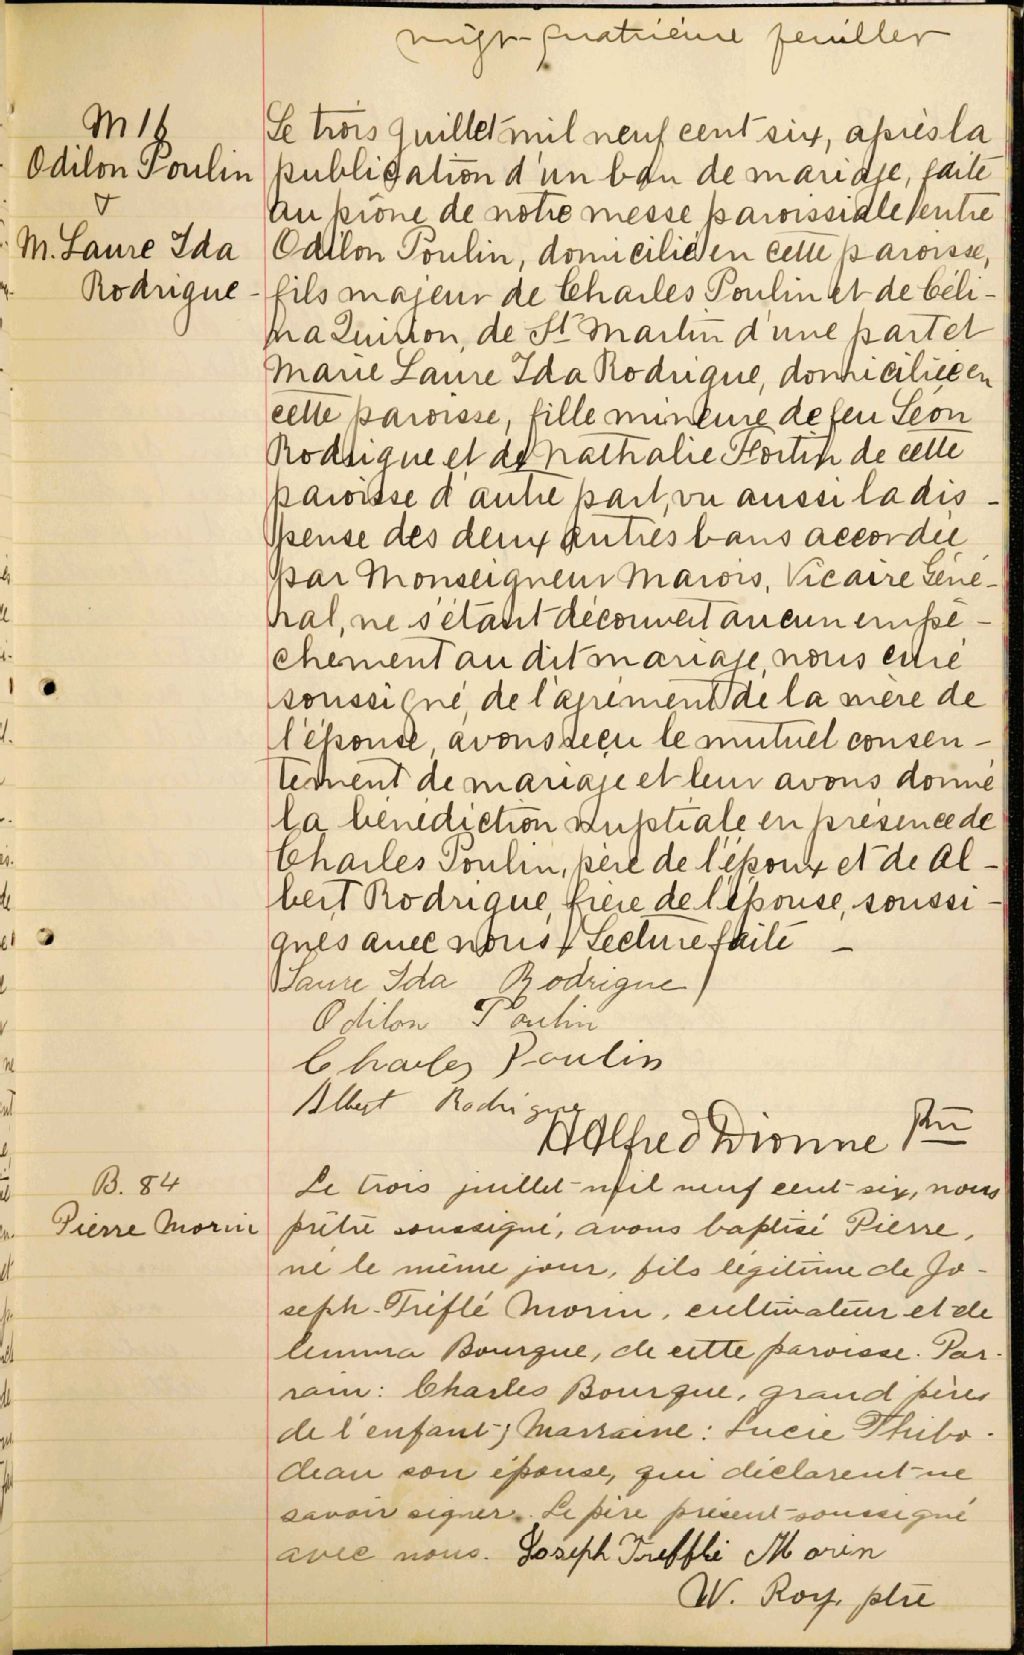 vingt-quatrième feuillet
M 16
Odilon Poulin
&
M. Laure Ida
Rodrigue -
Le trois Juillet mil neuf cent six, après la
publication d'un ban de mariage, faite
au prône de notre messe paroissiale entre
Odilon Poulin, domicilié en cette paroisse,
fils majeur de Charles Poulin et de Céli-
na Quirion, de St Martin d'une part et
Marie Laure Ida Rodrigue, domiciliée en
cette paroisse, fille mineure de feu Léon
Rodrigue et de Nathalie Fortin de cette
paroisse d'autre part, vu aussi la dis-
pense des deux autres bans accordée
par Monseigneur Marois, Vicaire Géné-
ral, ne s'étant découvert aucun empê-
chement au dit mariage, nous curé
soussigné, de l'agrément de la mère de
l'épouse, avons reçu le mutuel consen-
tement de mariage et leur avons donné
la bénédiction nuptiale en présence de
Charles Poulin, père de l'époux et de Al-
bert Rodrigue, frère de l'épouse, soussi-
gnés avec nous. Lecture faite -
Laure Ida Rodrigue
Odilon Poulin
Charles Poulin
Albert Rodrigue
HAlfred Dionne
B. 84
Pierre Morin
Le trois juillet mil neuf cent six, nous
prêtre soussigné, avons baptisé Pierre,
né le même jour, fils légitime de Jo-
seph-Tréflé Morin, cultivateur et de
Bourque, de cette paroisse. Par-
rain: Charles Bourque, grand père
de l'enfant; Marraine: Lucie Thibo-
deau son épouse, qui déclarent ne
savoir signer. Le père présent soussigné
avec nous. Joseph Trefflé Morin
W. Roy, ptre